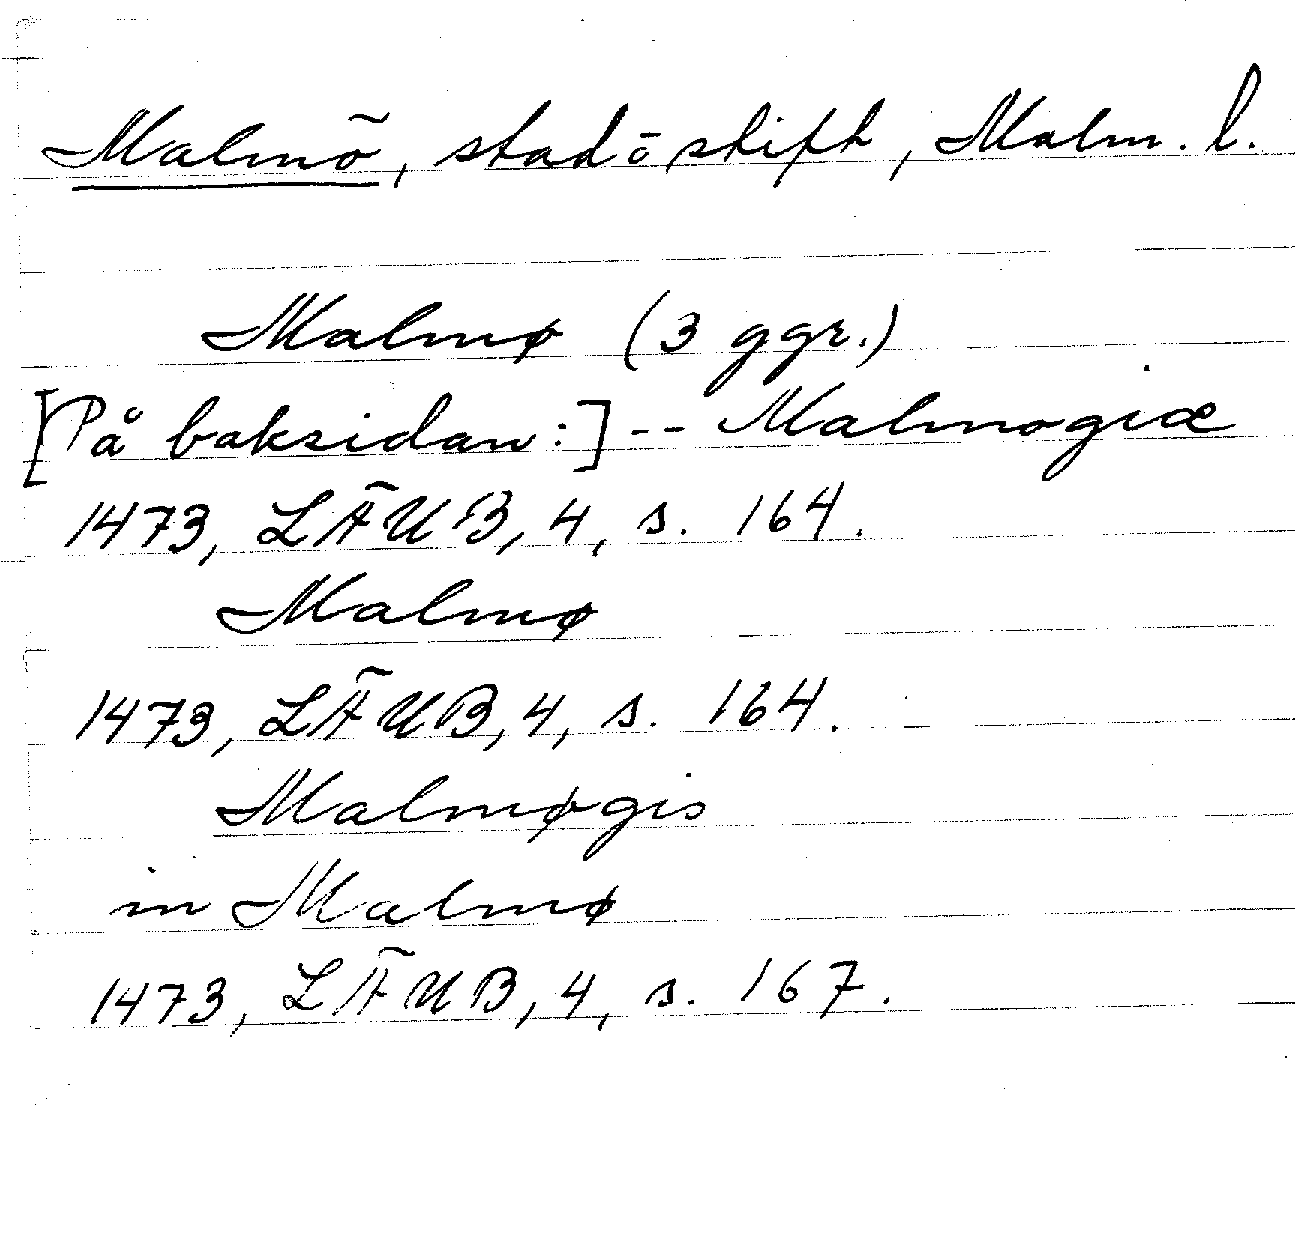 Malmö, stad o stift, Malm. l.
Malmø (3 ggr.)
[På baksidan:] -- Malmogiæ
1473, LÄUB, 4, s. 164.
Malmø
1473, LÄUB, 4, s. 164.
Malmøgis
in Malmø
1473, LÄUB, 4, s. 167.